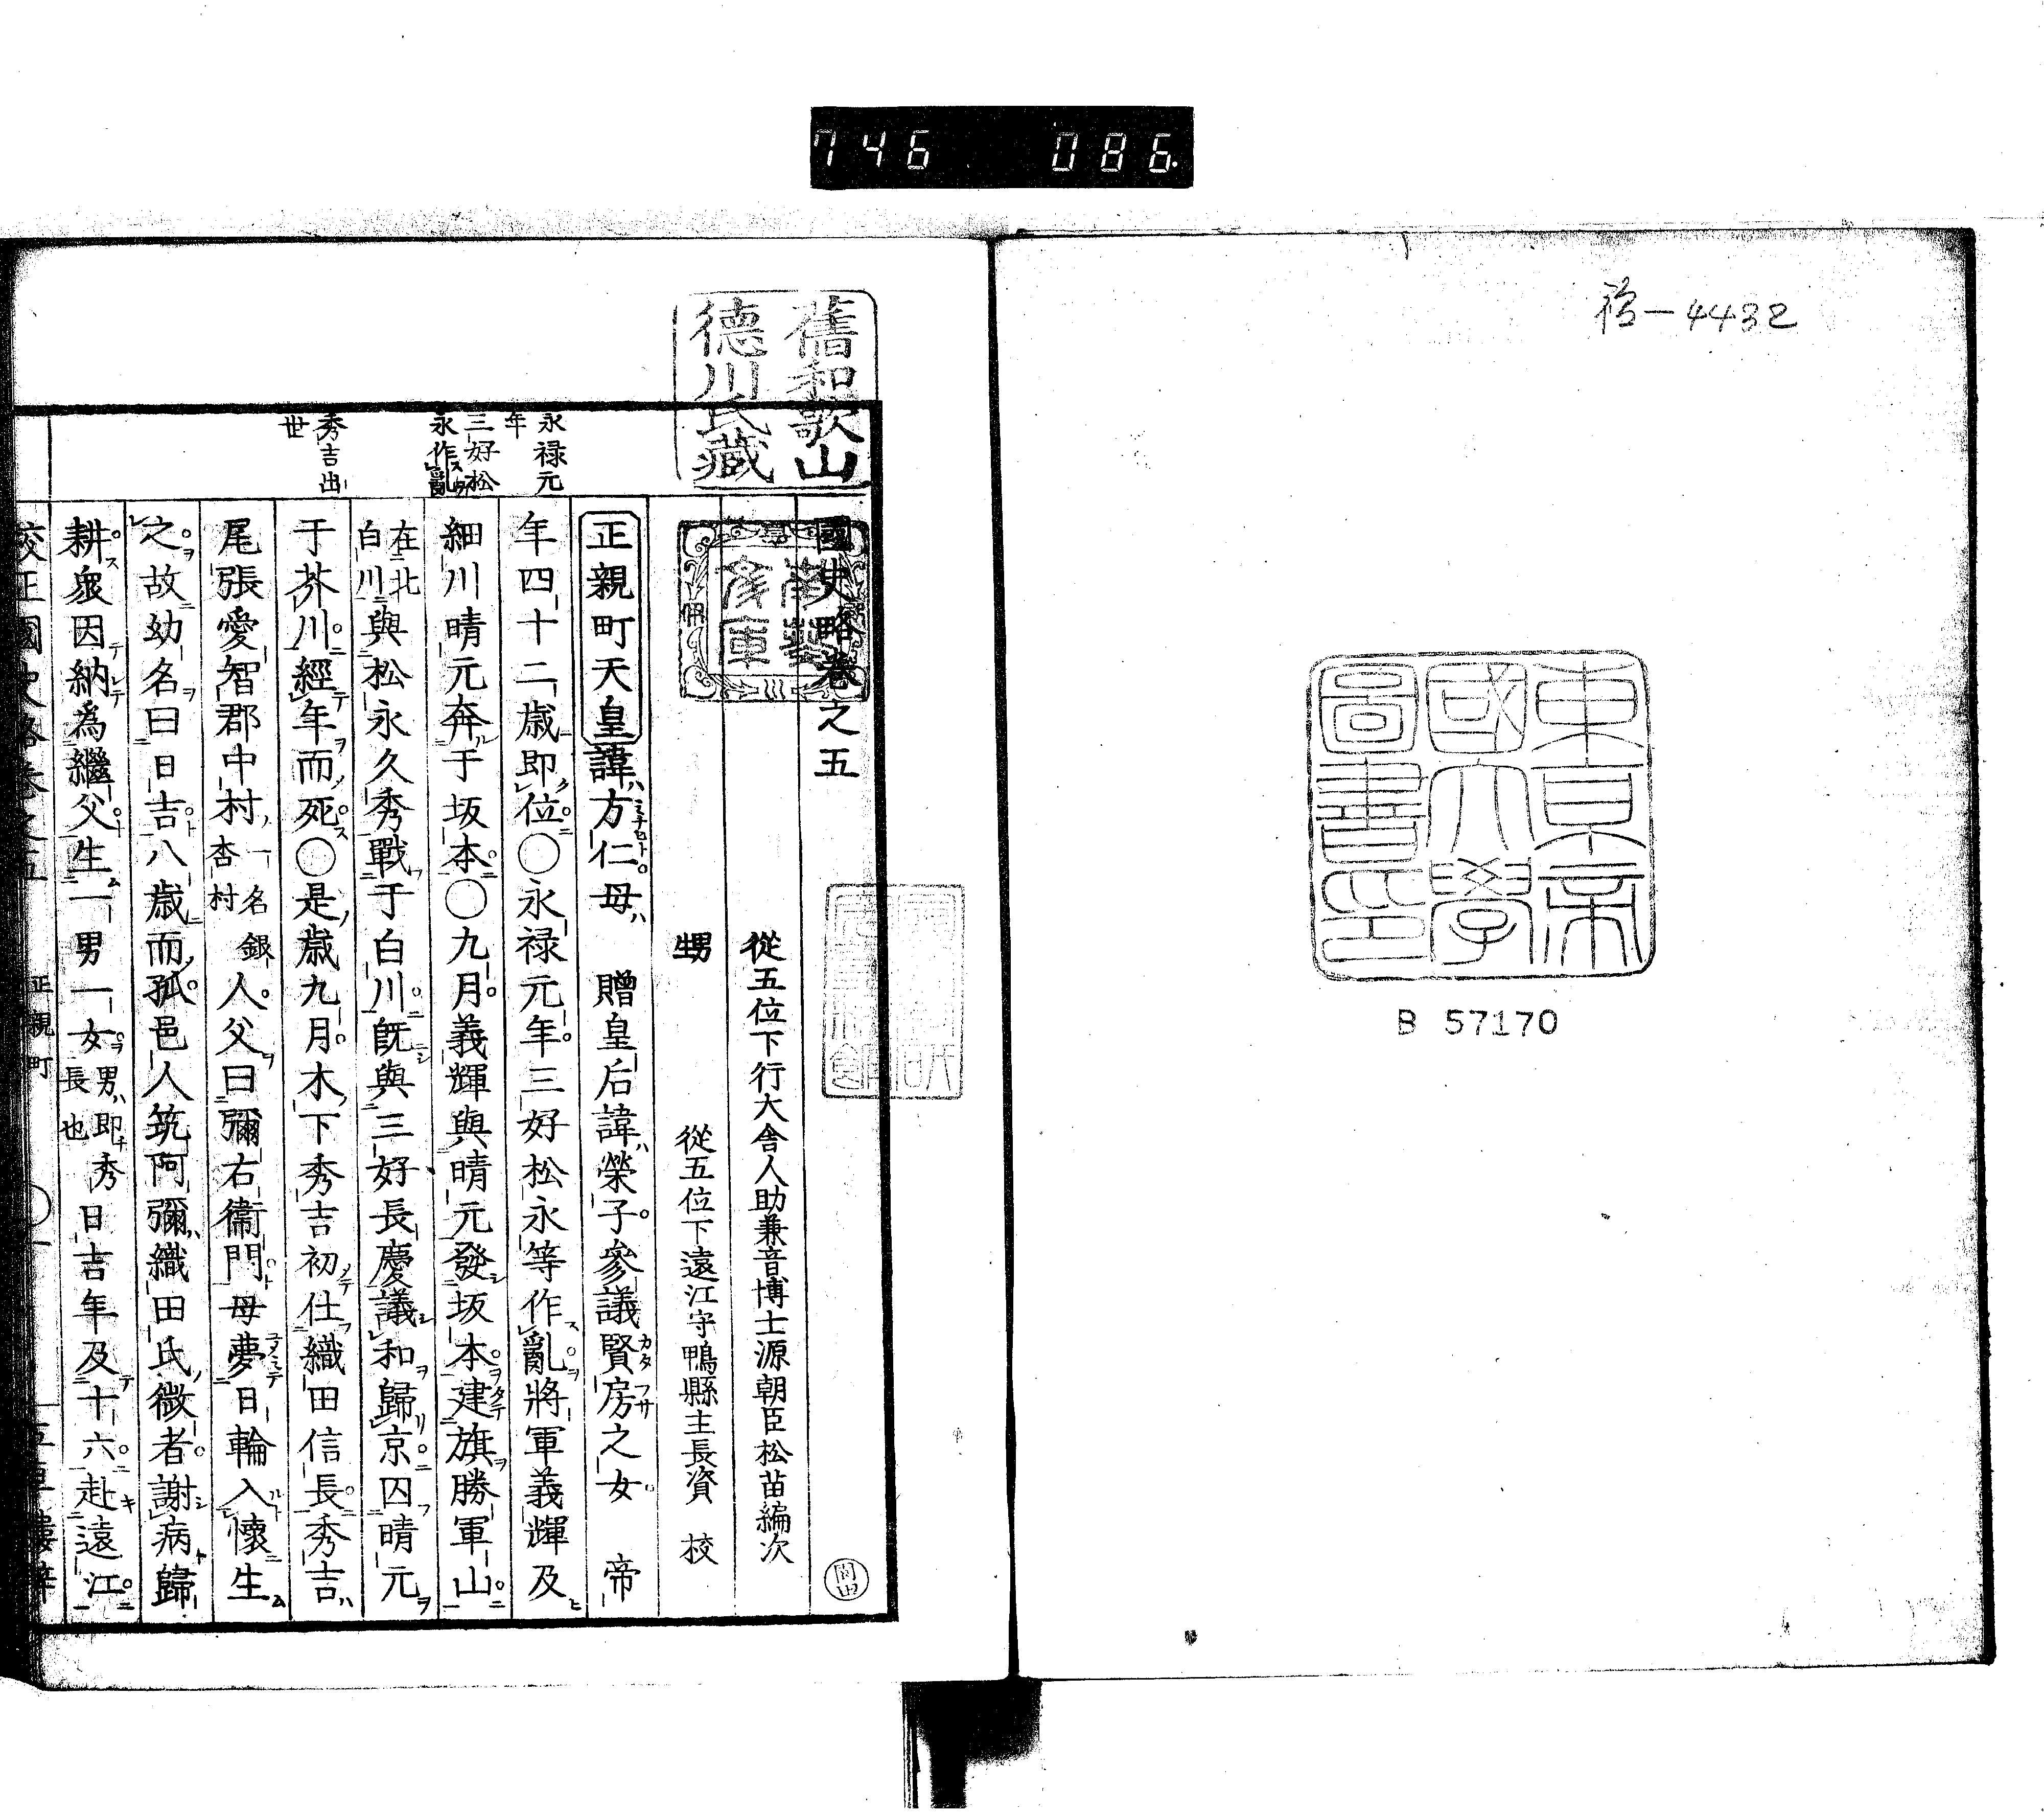 746 086
褔-4432
東京帝
國大學
圖書印
B 57170
舊和歌山
德川氏藏
南葵
文庫
國史略卷之五
從五位下行大舍人助兼音博士源朝臣松苗編次
甥 從五位下遠江守鴨縣主長資 校
正親町天皇諱方仁母 贈皇后諱榮子參議賢房之女 帝
永禄元
年
年四十二歲即位○永禄元年三好松永等作亂將軍義輝及
三好松
永作亂
細川晴元奔于坂本○九月義輝與晴元發坂本建旗勝軍山
在北
白川與松永久秀戰于白川既與三好長慶議和歸京囚晴元
秀吉出
世
于芥川經年而死○是歲九月木下秀吉初仕織田信長秀吉
尾張愛智郡中村一名
杏村銀人父曰彌右衞門母夢日輪入懷生
之故幼名曰日吉八歲而孤邑人筑阿彌織田氏微者謝病歸
耕衆因納爲繼父生一男一女男即秀
長也日吉年及十六赴遠江
校正國史略卷之五 正親町 ○一